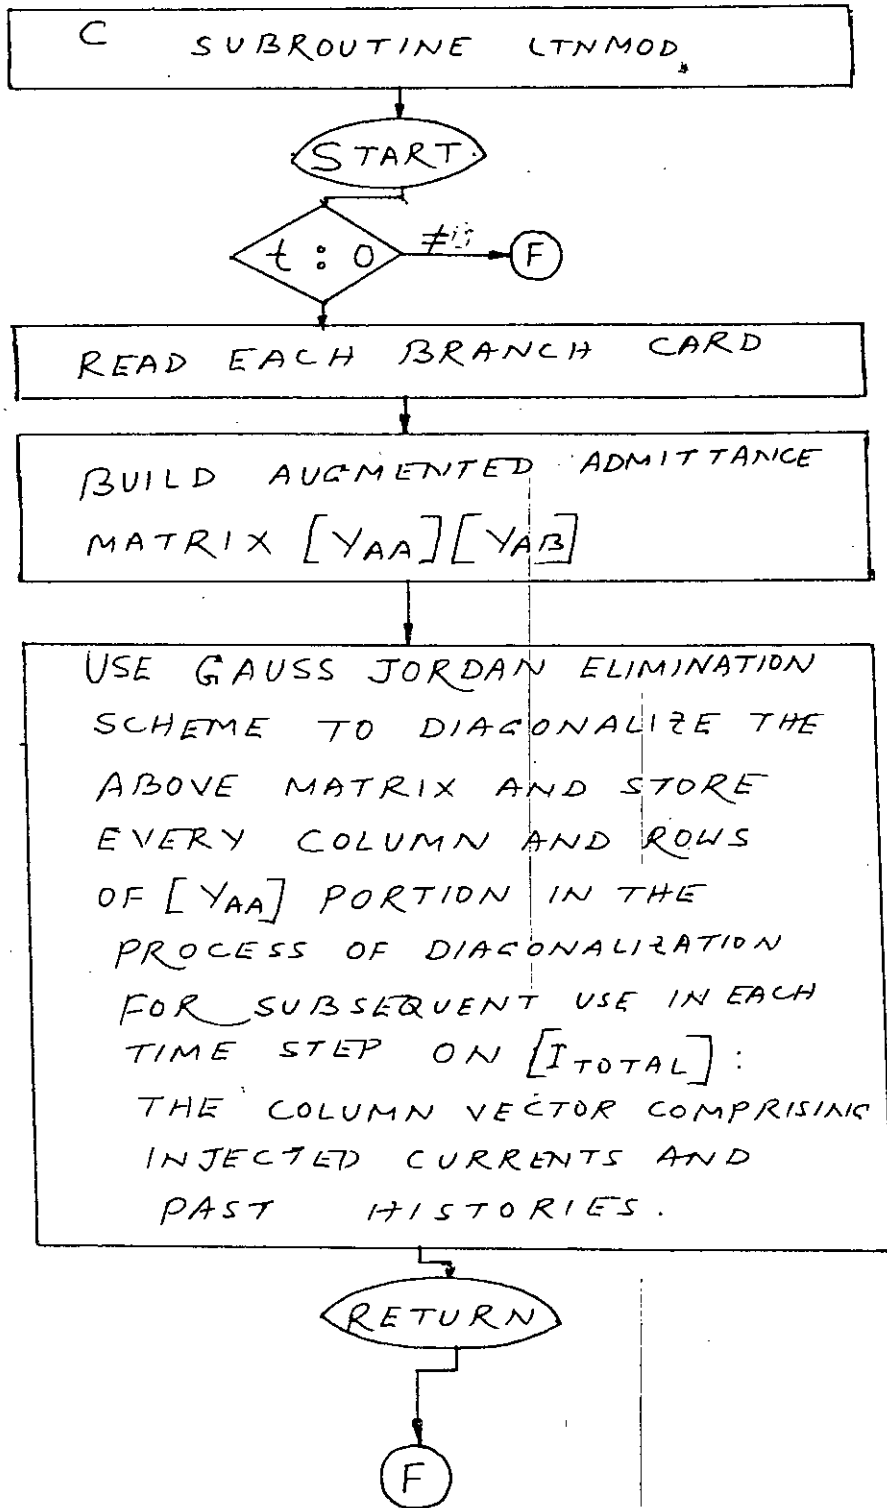 C SUBROUTINE LTNMOD.
START.
t : 0
≠
F
READ EACH BRANCH CARD
BUILD AUGMENTED ADMITTANCE
MATRIX [YAA][YAB]
USE GAUSS JORDAN ELIMINATION
SCHEME TO DIAGONALIZE THE
ABOVE MATRIX AND STORE
EVERY COLUMN AND ROWS
OF [YAA] PORTION IN THE
PROCESS OF DIAGONALIZATION
FOR SUBSEQUENT USE IN EACH
TIME STEP ON [ITOTAL]:
THE COLUMN VECTOR COMPRISING
INJECTED CURRENTS AND
PAST HISTORIES.
RETURN
F